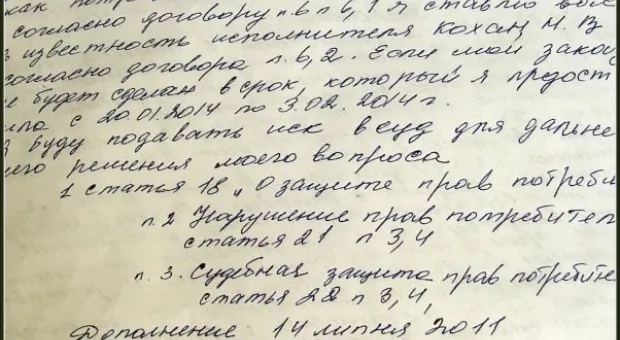 как потре
согласно договору п в п 6,1 я ставлю вас
в известность исполнителя Кохан Н. В
согласно договора п. 6,2. Если мой заказ
не будет сделан в срок, который я предост
ила с 20.01.2014 по 3.02.2014 г.
я буду подавать иск в суд для дальне
его решения моего вопроса
1 статья 18 „О защите прав потреби
п. 2 Нарушение прав потребител
статья 21 п 3,4
п. 3. Судебная защита прав потребите
статья 22 п 3,4,
Дополнение 14 липня 2011